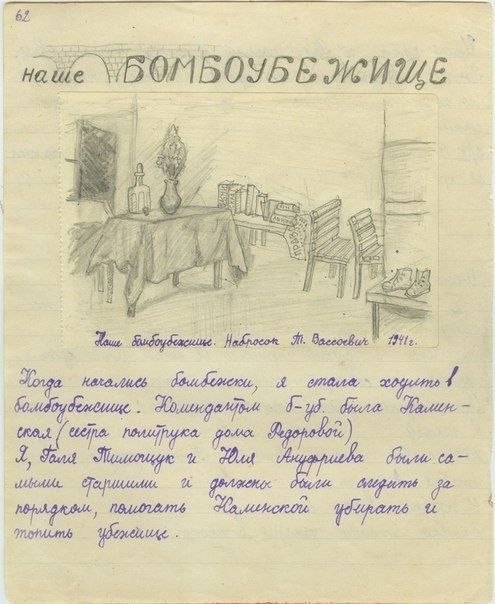 62
наше БОМБОУБЕЖИЩЕ
Наше бомбоубежище. Набросок Т. Вассоевич 1941 г.
Когда начались бомбежки, я стала ходить в
бомбоубежище. Комендантом б-уб. была Камен-
ская (сестра политрука дома Федоровой)
Я, Галя Тимощук и Юля Ануфриева были са-
мыми старшими и должны были следить за
порядком, помогать Каменской убирать и
топить убежище.